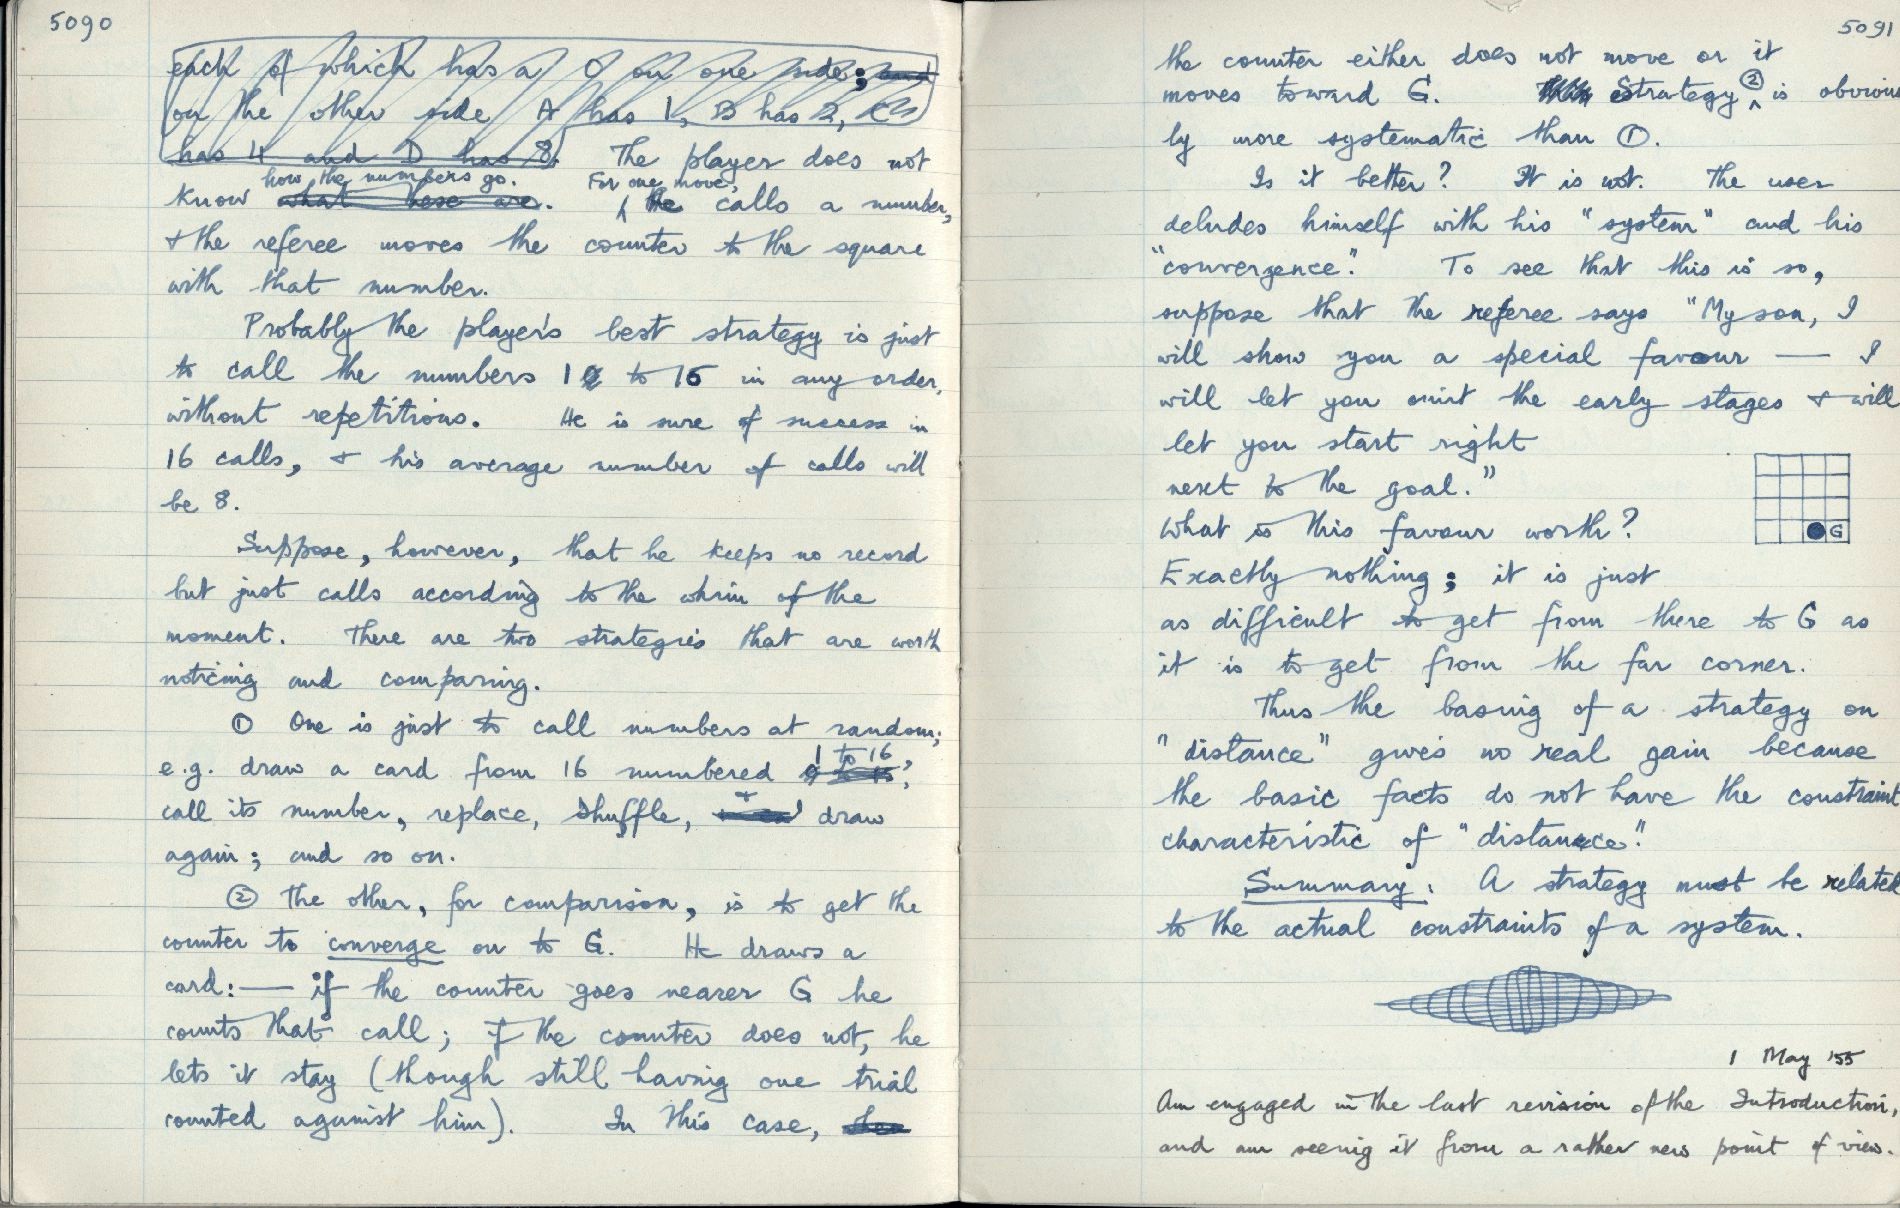 5090
each of which has a 0 on one side; and
on the other side A has 1, B has 2, C
has 4 and D has 8. The player does not
how the numbers go. For one move,
know what these are. he calls a number,
& the referee moves the counter to the square
with that number.
Probably the player's best strategy is just
to call the numbers 1 to 16 in any order,
without repetitions. He is sure of success in
16 calls, & his average number of calls will
be 8.
Suppose, however, that he keeps no record
but just calls according to the whim of the
moment. There are two strategies that are worth
noticing and comparing.
① One is just to call numbers at random;
1 to 16
e.g. draw a card from 16 numbered 0 to 15,
call its number, replace, shuffle, + draw
again; and so on.
② The other, for comparison, is to get the
counter to converge on to G. He draws a
card:— if the counter goes nearer G he
counts that call; if the counter does not, he
lets it stay (though still having one trial
counted against him). In this case,
5091
the counter either does not move or it
moves toward G. Strategy ② is obvious
ly more systematic than ①.
Is it better? It is not. The user
deludes himself with his "system" and his
"convergence". To see that this is so,
suppose that the referee says "My son, I
will show you a special favour — I
will let you omit the early stages & will
let you start right
next to the goal."
What is this favour worth?
G
Exactly nothing; it is just
as difficult to get from there to G as
it is to get from the far corner.
Thus the basing of a strategy on
"distance" gives no real gain because
the basic facts do not have the constraint
characteristic of "distance".
Summary: A strategy must be related
to the actual constraints of a system.
1 May '55
Am engaged in the last revision of the Introduction,
and am seeing it from a rather new point of view.